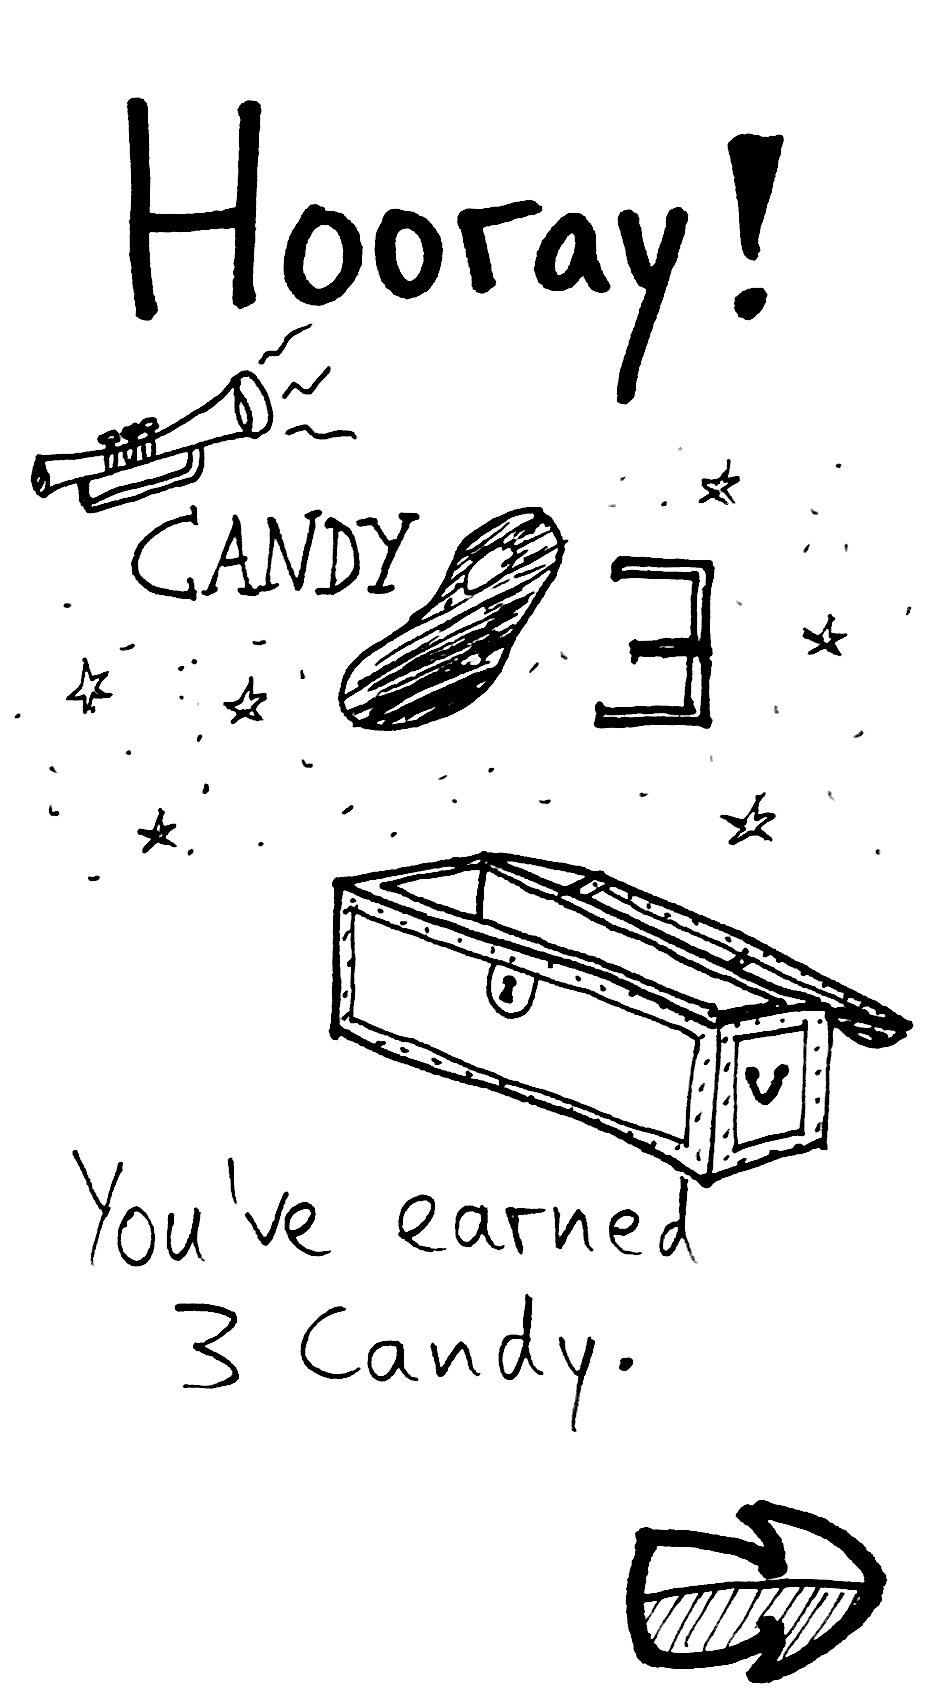 Hooray!
CANDY 3
You've earned
3 Candy.